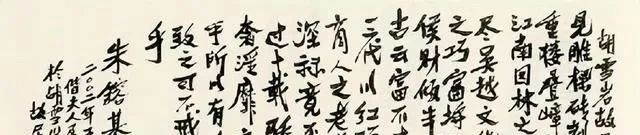 胡雪岩故
见雕樑砖刻
重楼叠嶂
江南园林之
尽吴越文
之巧富埒
侯财倾半
古云富不
三代以红
商人之老
深算竟
过十载
奢淫靡
乎所以有
致之可不戒
乎
朱镕基
二〇〇二年
偕夫人
於胡雪
故居